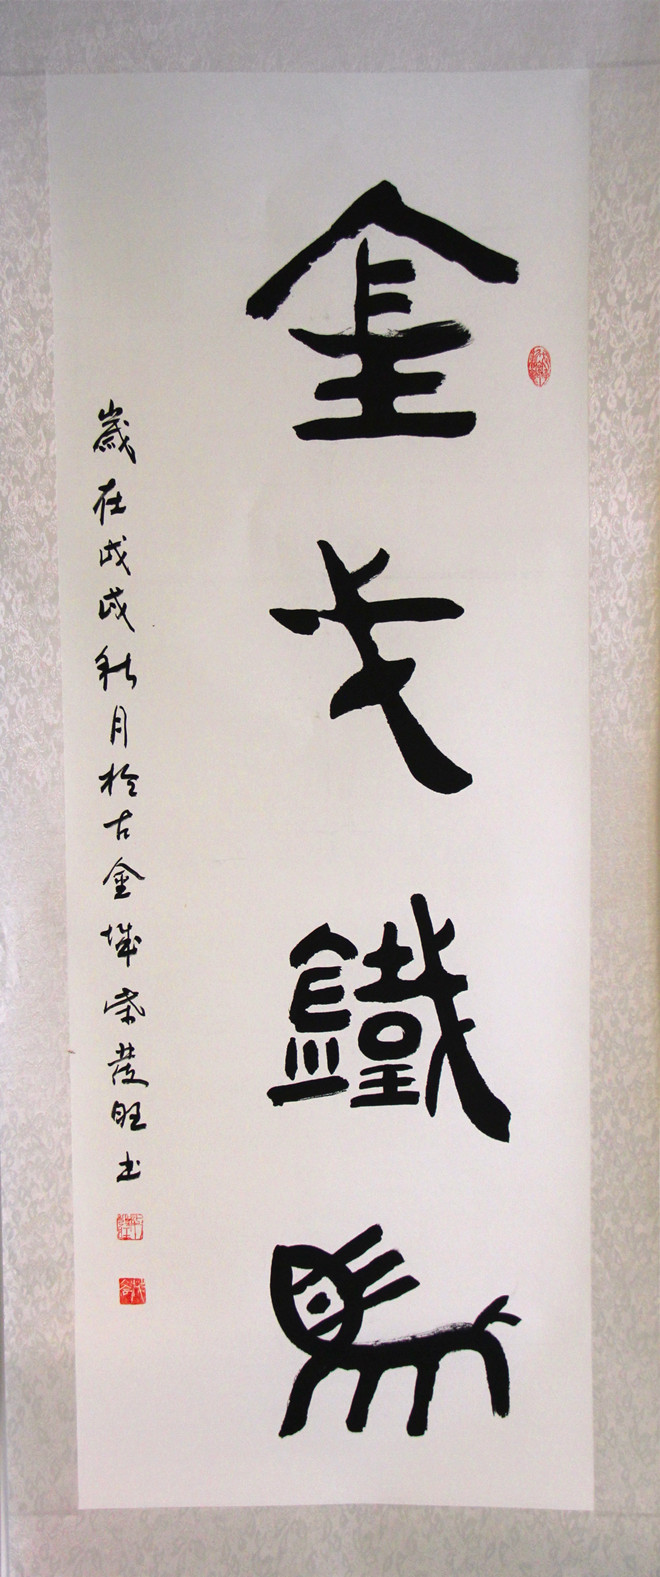 金戈鐵馬
歲在戊戌秋月於古金城柴發旺書